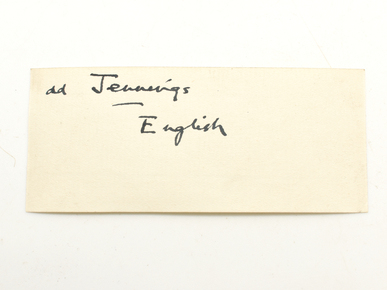 dd Jennings
English